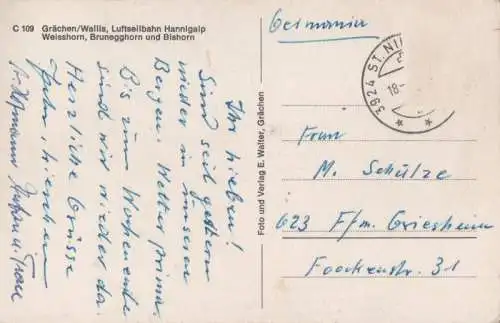 C 109 Grächen/Wallis, Luftseilbahn Hannigalp
Weisshorn, Brunegghorn und Bishorn
Ihr Lieben!
Sind seit gestern
wieder in unseren
Bergen. Wetter prima.
Bis zum Wochenende
sind wir wieder da.
Herzliche Grüsse
Foto und Verlag E. Walter, Grächen
Germania
3924 ST. NI
18.
Frau
M. Schulze
623 F/m. Griesheim
31